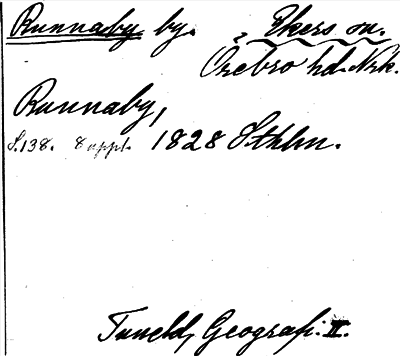 Runnaby by. Ekers sn.
Örebro hd. Nrk.
Runnaby,
S.138. 8 uppl. 1828 Sthlm.
Tuneld, Geografi. II.